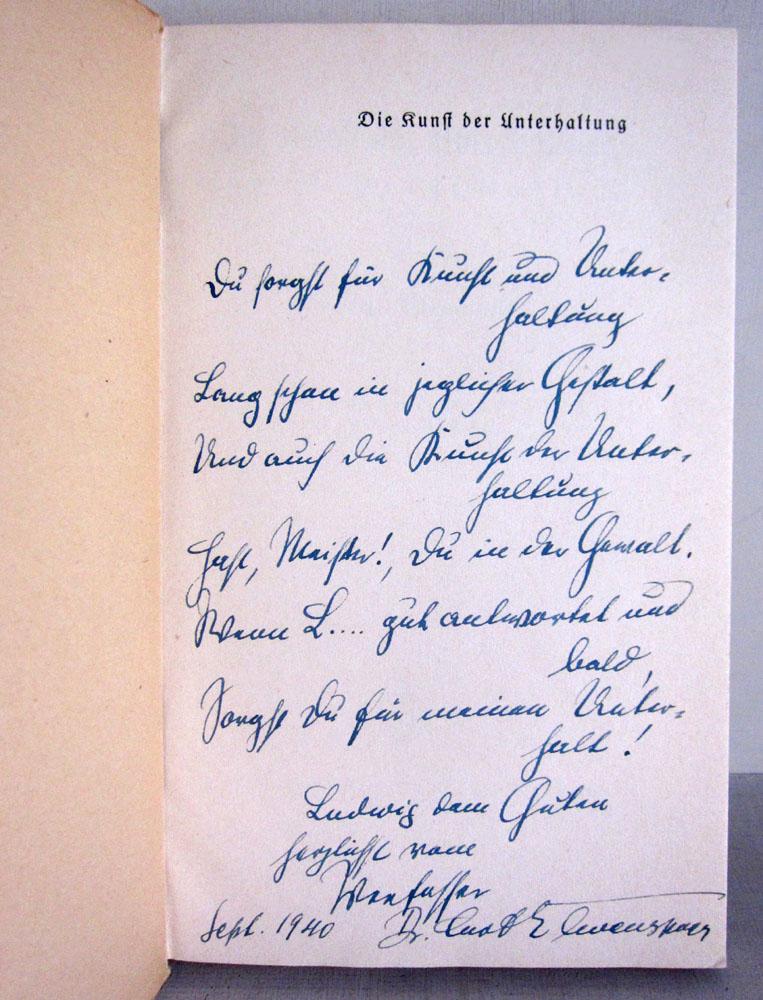 Die Kunst der Unterhaltung
Du sorgst für Kunst und Unter-
haltung
Lang schon in jeglicher Gestalt,
Und auch die Kunst der Unter-
haltung
Hast, Meister!, Du in der Gewalt.
Wenn L.... gut antwortet und
bald,
Sorgst Du für meinen Unter-
halt!
Ludwig dem Guten
herzlichst vom
Verfasser
Sept. 1940 Dr. Curt Elwenspoek